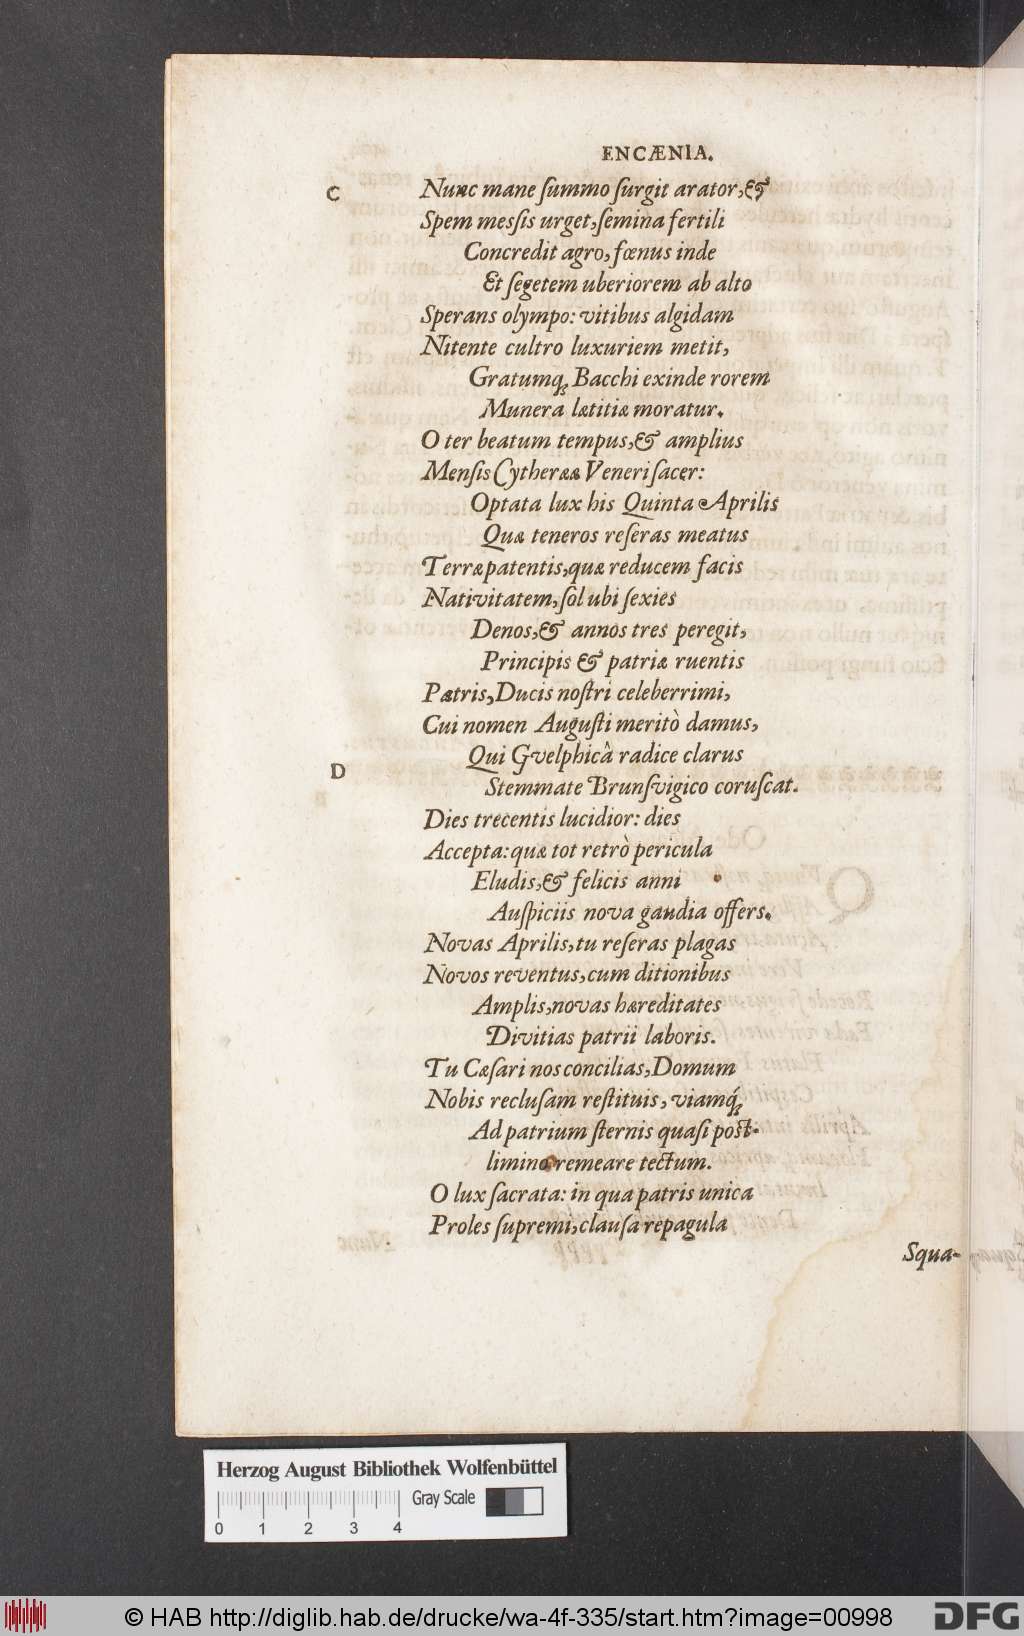 ENCÆNIA.
C
Nunc mane ſummo ſurgit arator, &
Spem meſſis urget, ſemina fertili
Concredit agro, fœnus inde
Et ſegetem uberiorem ab alto
Sperans olympo: vitibus algidam
Nitente cultro luxuriem metit,
Gratumq́ꝫ Bacchi exinde rorem
Munera lætitiæ moratur.
O ter beatum tempus, & amplius
Menſis Cytherææ Veneri ſacer:
Optata lux his Quinta Aprilis
Quæ teneros reſeras meatus
Terræ patentis, quæ reducem facis
Nativitatem, ſol ubi ſexies
Denos, & annos tres peregit,
Principis & patriæ ruentis
Patris, Ducis noſtri celeberrimi,
Cui nomen Auguſti meritò damus,
Qui Gvelphicâ radice clarus
D
Stemmate Brunſvigico coruſcat.
Dies trecentis lucidior: dies
Accepta: quæ tot retrò pericula
Eludis, & felicis anni
Auſpiciis nova gaudia offers.
Novas Aprilis, tu reſeras plagas
Novos reventus, cum ditionibus
Amplis, novas hæreditates
Divitias patrii laboris.
Tu Cæſari nos concilias, Domum
Nobis recluſam reſtituis, viamq́ꝫ
Ad patrium ſternis quaſi post-
limino remeare tectum.
O lux ſacrata: in qua patris unica
Proles ſupremi, clauſa repagula
Squa-
Herzog August Bibliothek Wolfenbüttel
Gray Scale
0 1 2 3 4
© HAB http://diglib.hab.de/drucke/wa-4f-335/start.htm?image=00998
DFG